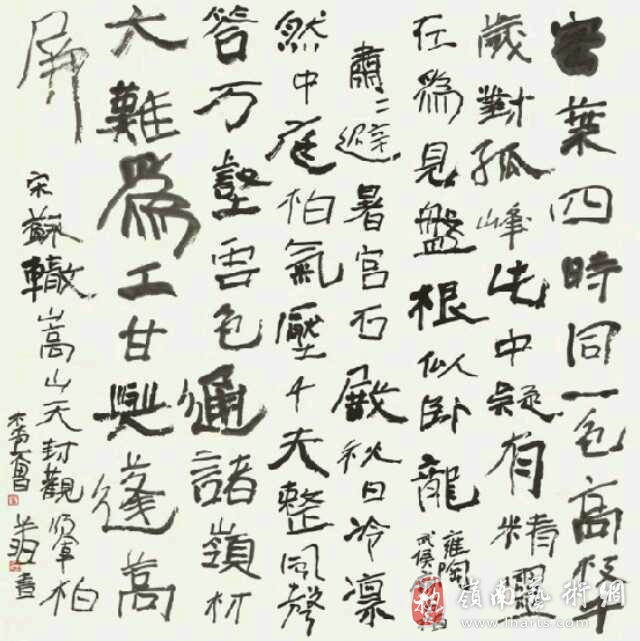 密葉四時同一色高枝千
歲對孤峰此中疑有精靈
在為見盤根似臥龍
雍陶
武侯廟古柏
肅〻避暑宮石殿秋日冷凜
然中庭柏氣壓千夫整風聲
答万壑雲色通諸嶺材
大難為工甘與蓬蒿
屏
宋蘇轍嵩山天封觀將軍柏
書
嶺南藝術網
www.lnarts.com